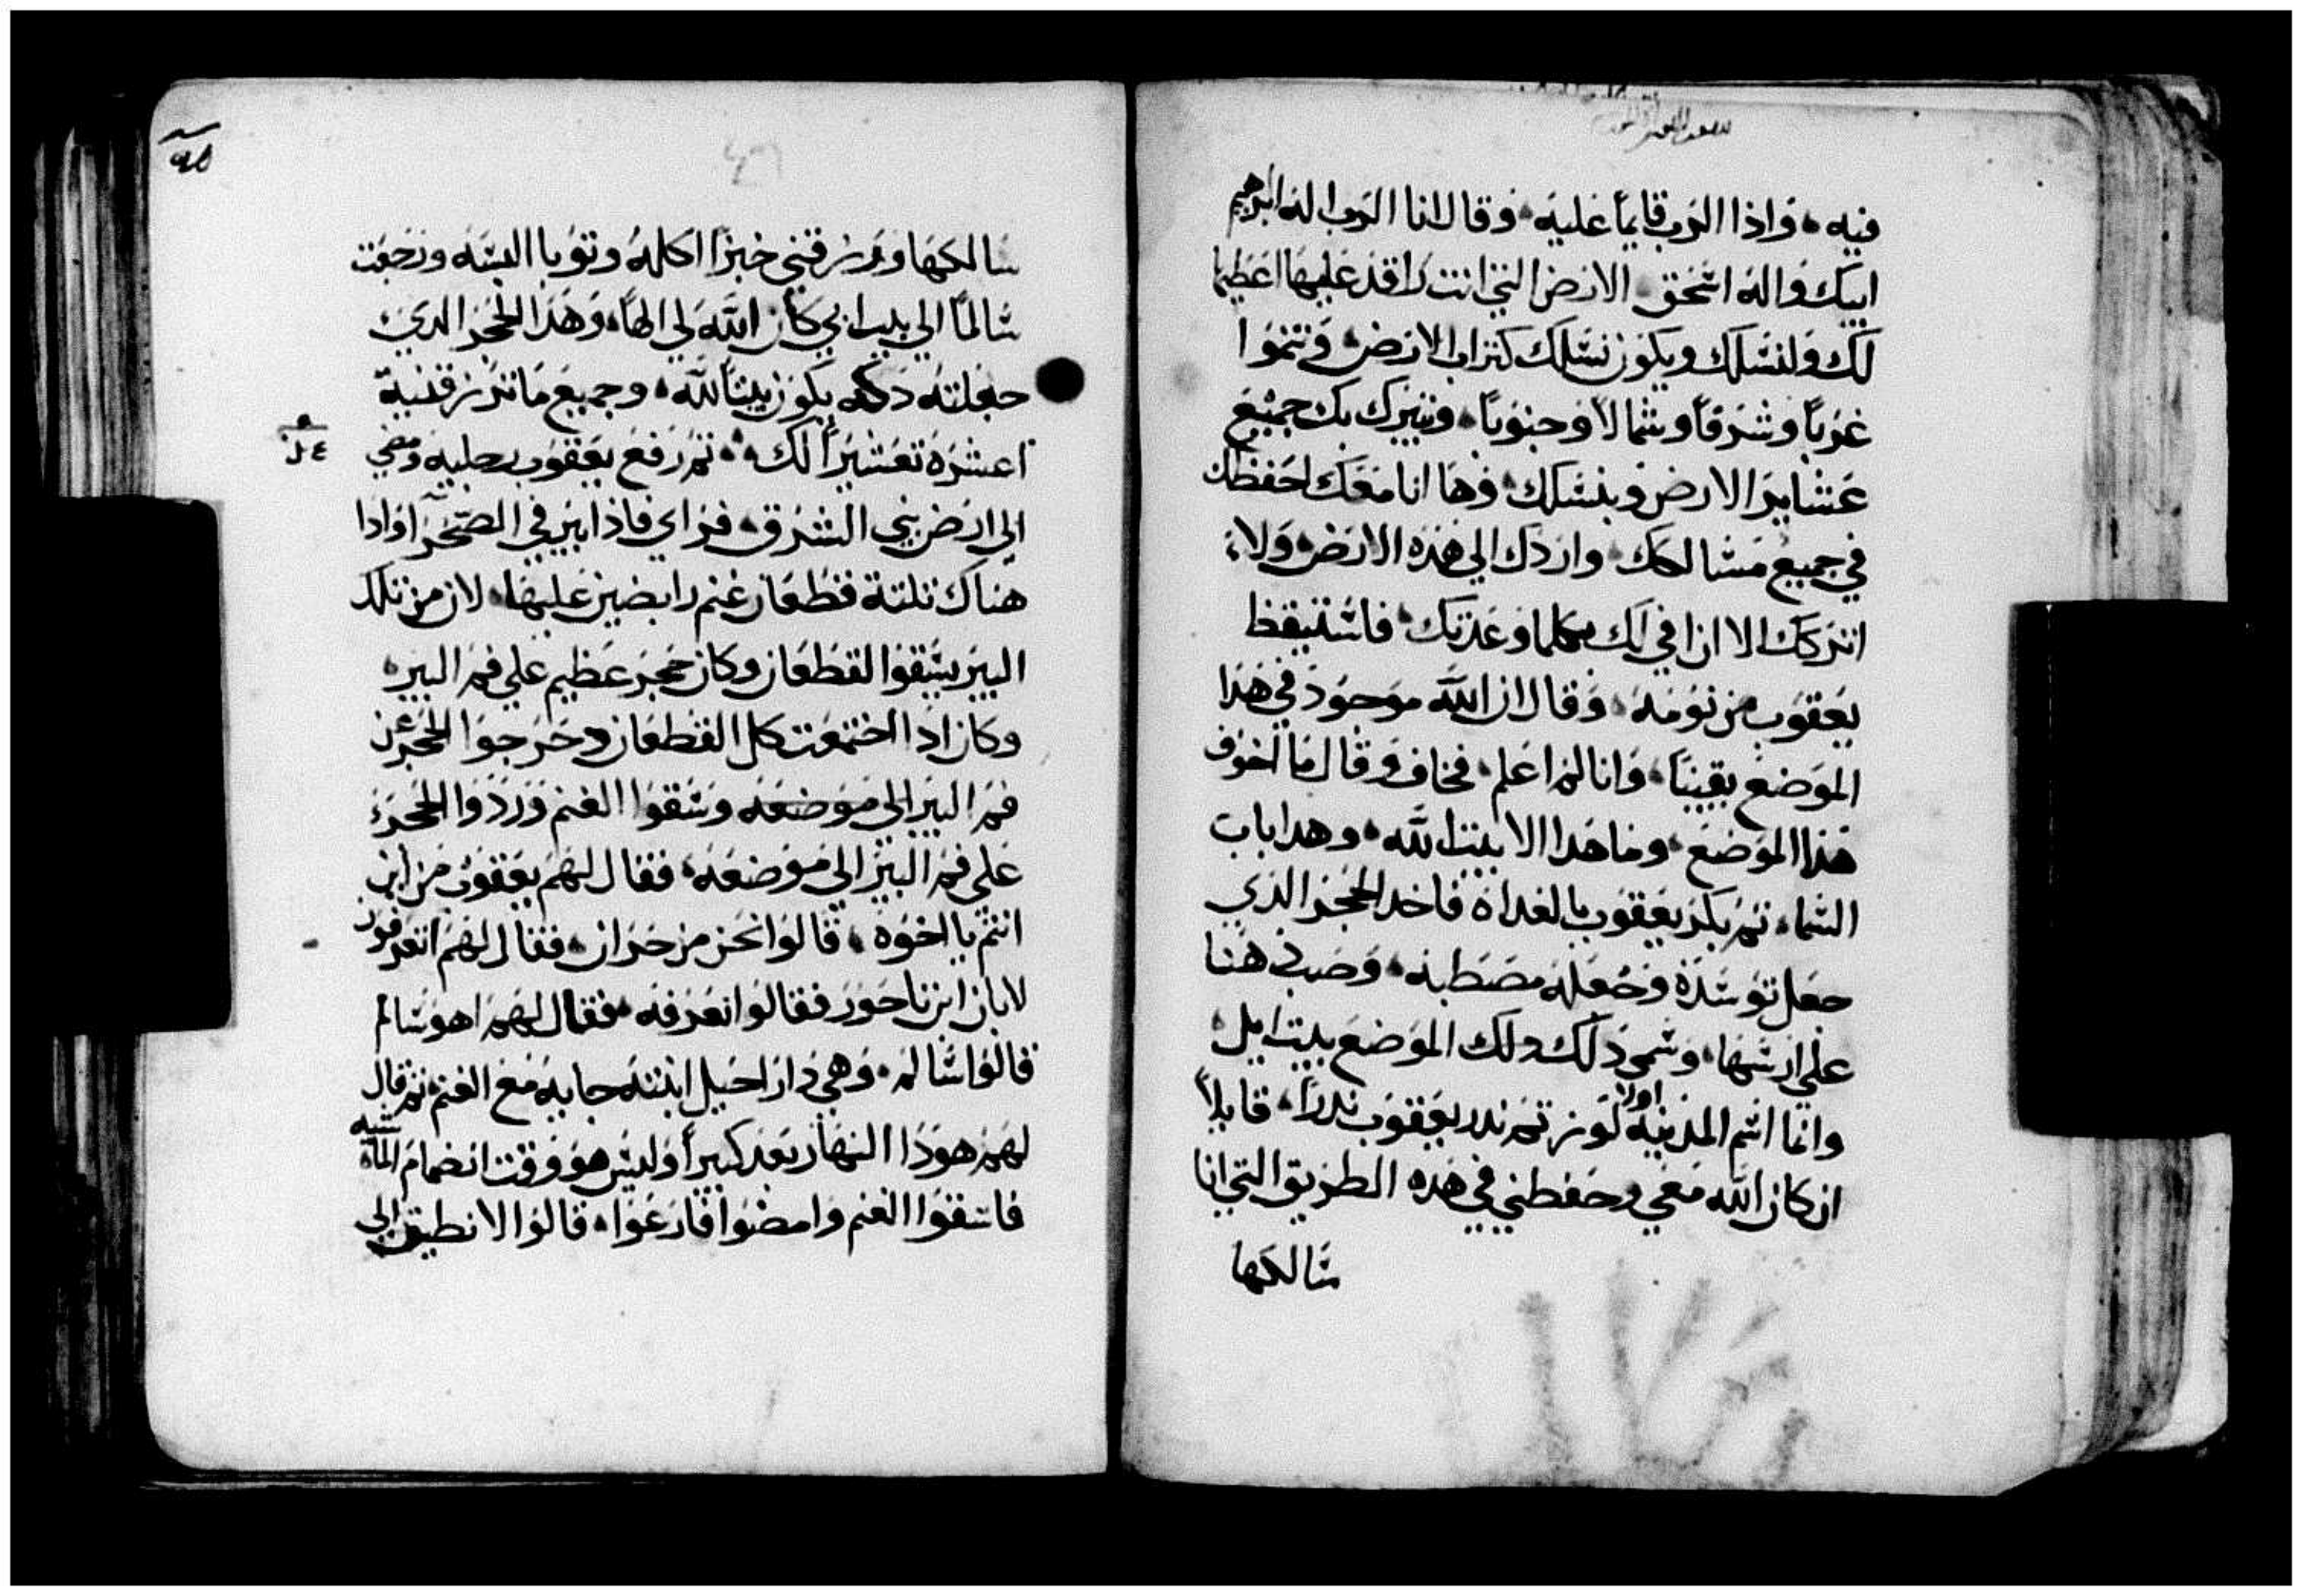 فيه، واذا الرب قايماً عليه، وقال انا الرب اله ابرهيم
ابيك واله اسحق الارض التي انت راقد عليها اعطيها
لك ولنسلك ويكون نسلك كتراب الارض، وتنموا
غرباً وشرقاً وشمالاً وجنوباً، ويتبرك بك جميع
عشاير الارض وبنسلك، وها انا معك احفظك
في جميع مسالكك واردك الي هذه الارض، ولا
اتركك الا ان افي لك بكلما وعدتك، فاستيقظ
يعقوب من نومه، وقال ان الله موجود في هذا
الموضع يقيناً، وانا لم اعلم، فخاف وقال ما اخوف
هذا الموضع، وما هدا الا بيت الله، وهدا باب
السماء، تم بكر يعقوب بالغداة فاخد الحجر الذي
جعل توسده وجعله مصطبه، وصب دهنا
علي راسها، وسمي دلك الموضع بيت ايل
وانما اسم المدينه اولا لوز تم ندر يعقوب ندراً، قايلاً
ان كان الله معي وحفظني في هذه الطريق التي انا
سالكها
سالكها ويرزقني خبزاً اكله وتوبا البسه ورجعت
سالماً الي بيت ابي كان الله لي الهاً، وهذا الحجر الذي
جعلته دكه يكون بيتاً لله، وجميع ما ترزقنيه
اعشره تعشيراً لك، تم رفع يعقوب رجليه ومضي
الي ارض بني الشرق، فراي فاذا بير في الصحرا واذا
هناك تلتة قطعان غنم رابضين عليها، لان من تلك
البير يسقوا القطعان وكان حجر عظيم علي فم البير
وكان ادا اجتمعت كل القطعان دحرجوا الحجر عن
فم البير الي موضعه وسقوا الغنم وردوا الحجر
علي فم البير الي موضعه، فقال لهم يعقوب من اين
انتم يا اخوه، قالوا نحن من حران، فقال لهم اتعرفون
لابان ابن ناحور فقالوا نعرفه، فقال لهم اهو سالم
قالوا سالم، وهي ذا راحيل ابنته جايه مع الغنم، تم قال
لهم هوذا النهار بعد كبيراً وليس هو وقت انضمام الماشيه
فاسقوا الغنم وامضوا فارعوا، قالوا لا نطيق الي